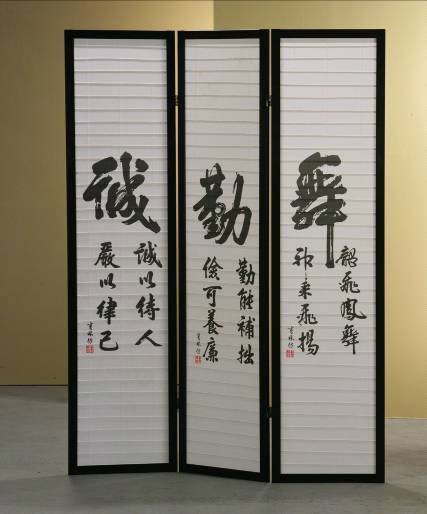 舞
龍飛鳳舞
神采飛揚
勤
勤能補拙
儉可養廉
誠
誠以待人
嚴以律己